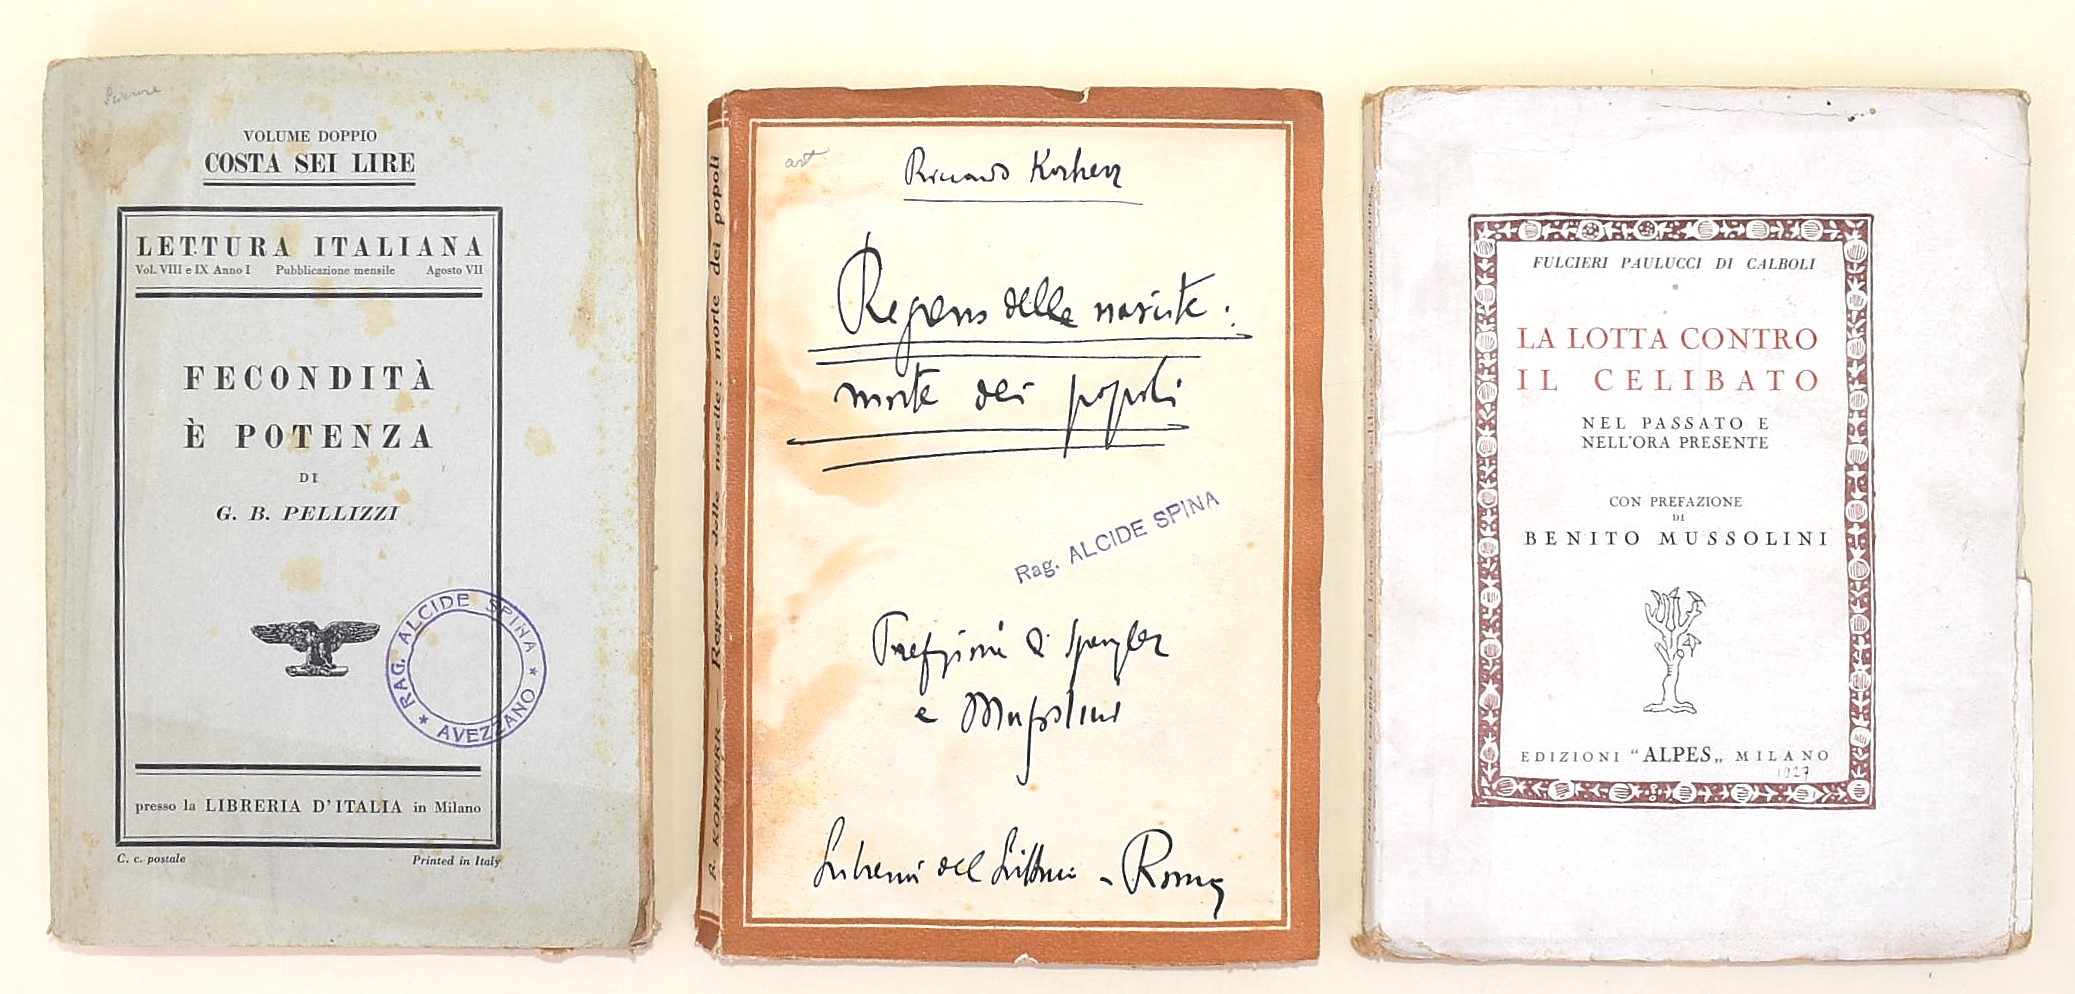 Science
VOLUME DOPPIO
COSTA SEI LIRE
LETTURA ITALIANA
Vol. VIII e IX Anno I Pubblicazione mensile Agosto VII
FECONDITÀ
È POTENZA
DI
G. B. PELLIZZI
RAG. ALCIDE SPINA * AVEZZANO *
presso la LIBRERIA D'ITALIA in Milano
C. c. postale Printed in Italy
R. KORHERR — Regresso delle nascite: morte dei popoli
art
Riccardo Korherr
Regresso delle nascite:
morte dei popoli
Rag. ALCIDE SPINA
Prefazioni di Spengler
e Mussolini
Libreria del Littorio - Roma
FULCIERI PAULUCCI DI CALBOLI
LA LOTTA CONTRO
IL CELIBATO
NEL PASSATO E
NELL'ORA PRESENTE
CON PREFAZIONE
DI
BENITO MUSSOLINI
EDIZIONI "ALPES„ MILANO
1927